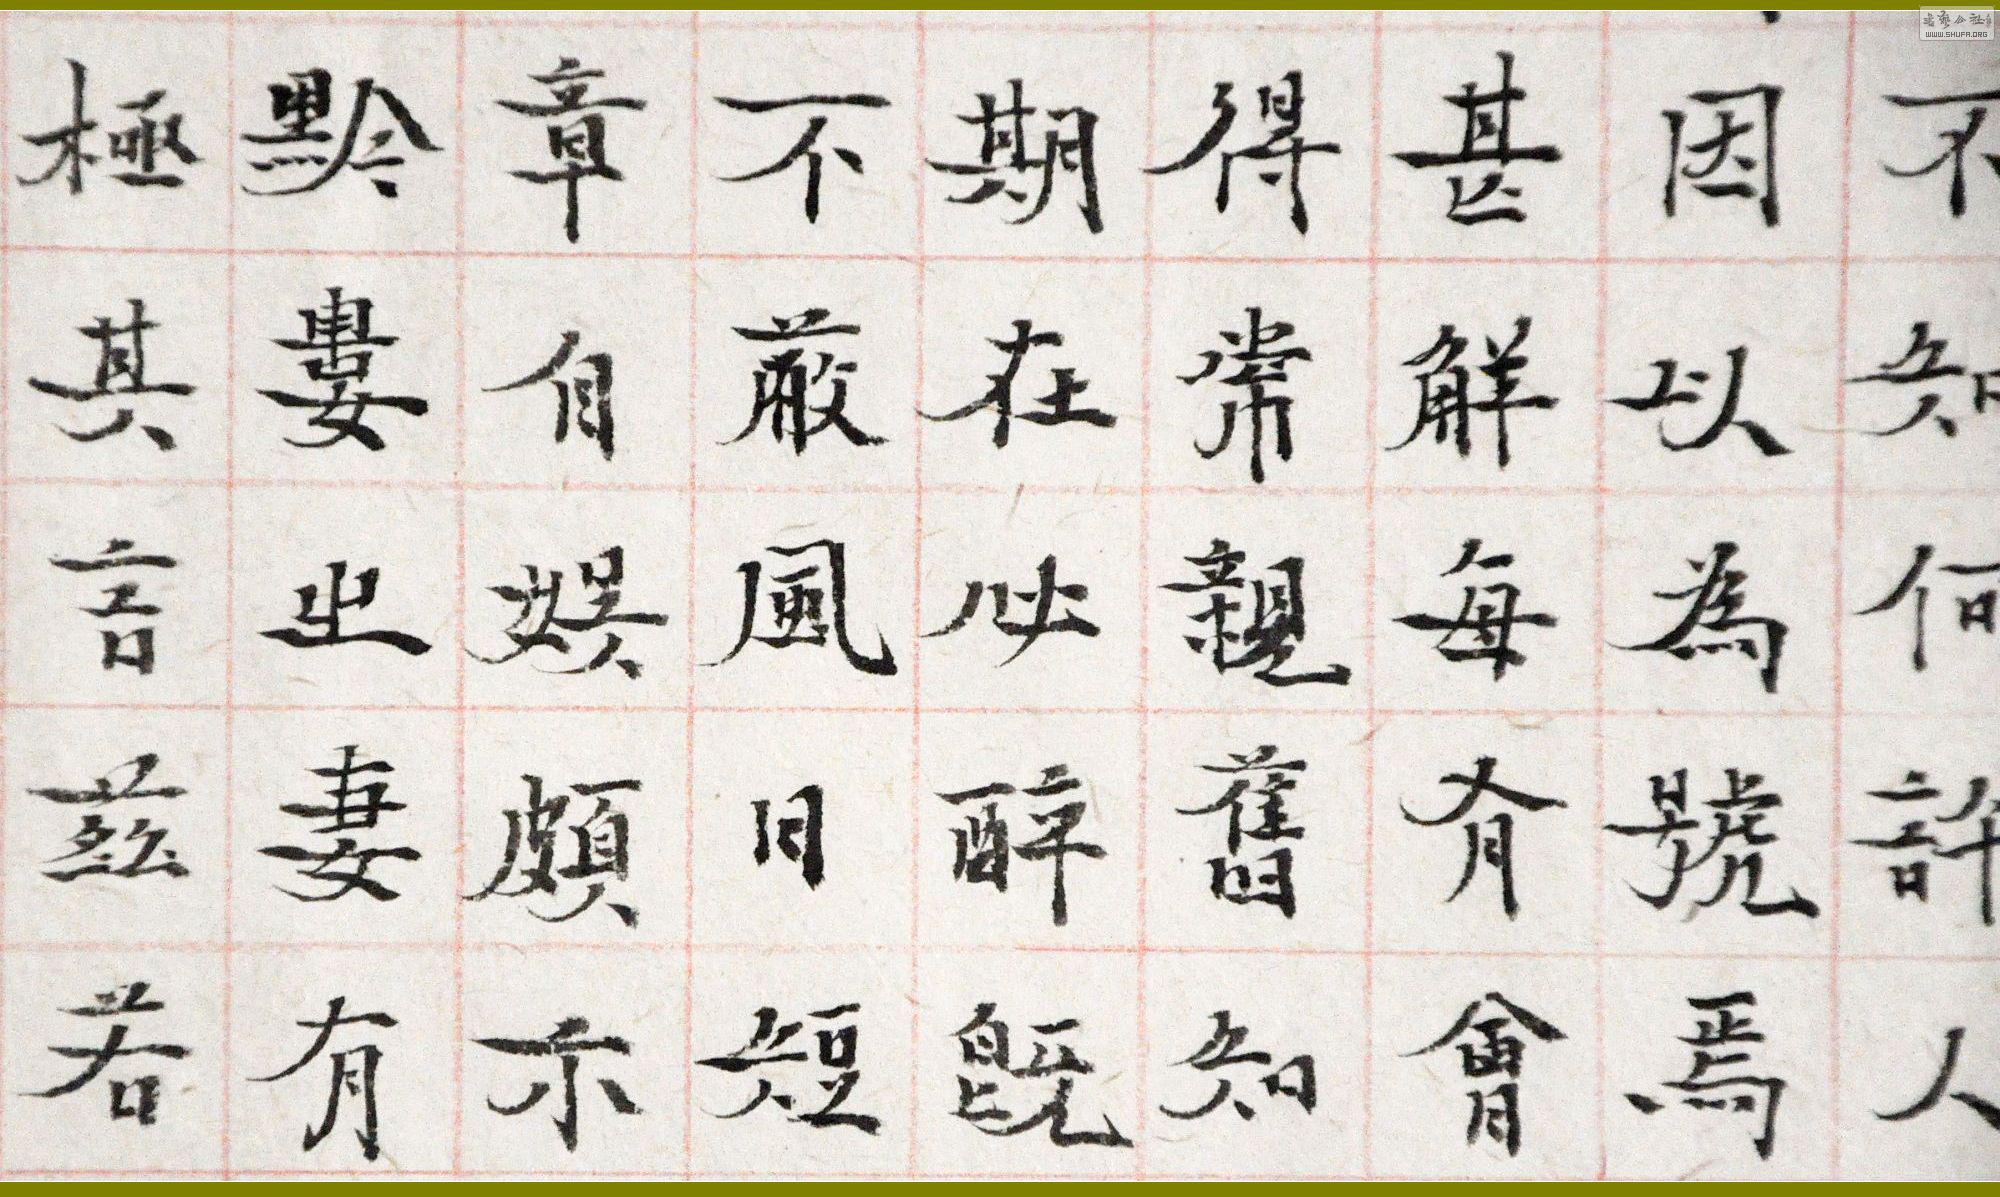 不知何許人
因以為號焉
甚解每有會
得常親舊知
期在必醉既
不蔽風日短
章自娛頗示
黔婁之妻有
極其言茲若
WWW.SHUFA.ORG